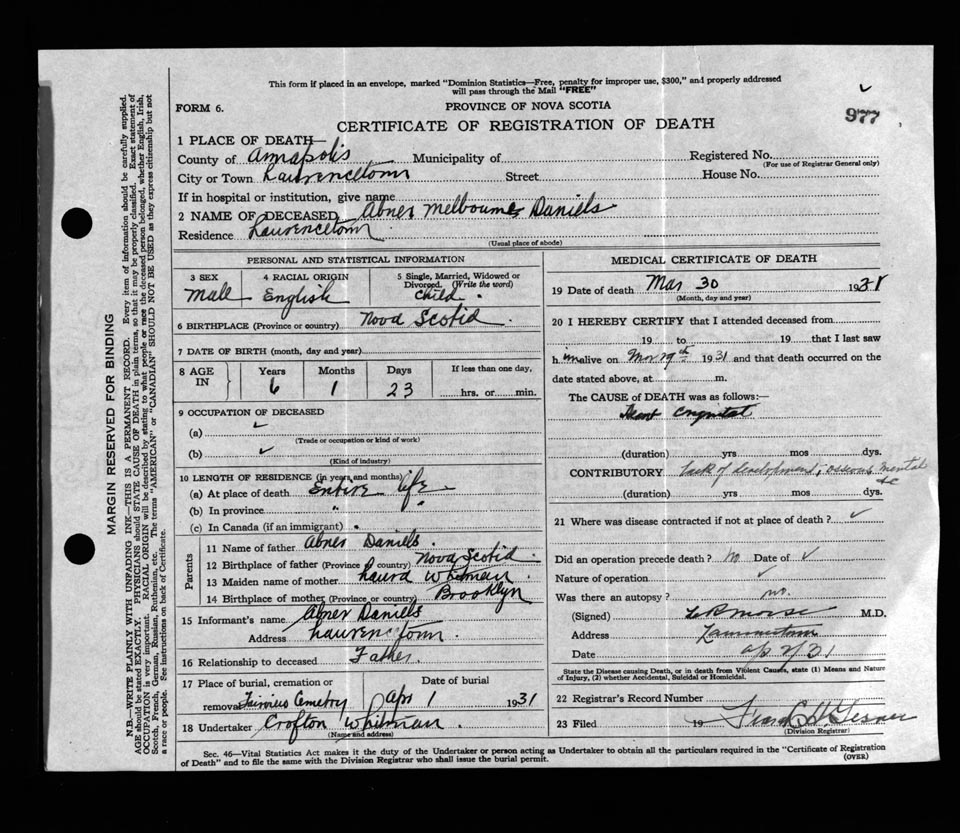 This form if placed in an envelope, marked "Dominion Statistics—Free, penalty for improper use, $300," and properly addressed
will pass through the Mail "FREE"
FORM 6.
PROVINCE OF NOVA SCOTIA
977
CERTIFICATE OF REGISTRATION OF DEATH
1 PLACE OF DEATH—
County of Annapolis Municipality of Registered No.
(For use of Registrar General only)
City or Town Lawrencetown Street House No.
If in hospital or institution, give name
2 NAME OF DECEASED Abner Melbourne Daniels
Residence Lawrencetown
(Usual place of abode)
PERSONAL AND STATISTICAL INFORMATION
3 SEX 4 RACIAL ORIGIN 5 Single, Married, Widowed or
Divorced. (Write the word)
Male English Child
6 BIRTHPLACE (Province or country) Nova Scotia
7 DATE OF BIRTH (month, day and year)
8 AGE IN Years Months Days If less than one day,
6 1 23 hrs. or min.
9 OCCUPATION OF DECEASED
(a) ✓
(Trade or occupation or kind of work)
(b) ✓
(Kind of industry)
10 LENGTH OF RESIDENCE (in years and months)
(a) At place of death Entire life
(b) In province " "
(c) In Canada (if an immigrant)
Parents
11 Name of father Abner Daniels
12 Birthplace of father (Province or country) Nova Scotia
13 Maiden name of mother Laura Whitman
14 Birthplace of mother (Province or country) Brooklyn
15 Informant's name Abner Daniels
Address Lawrencetown
16 Relationship to deceased Father
17 Place of burial, cremation or Date of burial
removal Fairview Cemetery Apr 1 1931
18 Undertaker Crofton Whitman
(Name and address)
MEDICAL CERTIFICATE OF DEATH
19 Date of death Mar 30 1931
(Month, day and year)
20 I HEREBY CERTIFY that I attended deceased from
19 to 19 that I last saw
him alive on Mar 1931 and that death occurred on the
date stated above, at m.
The CAUSE of DEATH was as follows:—
Heart Congenital
(duration) yrs mos dys.
CONTRIBUTORY lack of development, osseous mental
(duration) yrs mos dys.
21 Where was disease contracted if not at place of death? ✓
Did an operation precede death? No Date of ✓
Nature of operation ✓
Was there an autopsy? no.
(Signed) Morse M.D.
Address Lawrencetown
Date Ap 2/31
State the Disease causing Death, or in death from Violent Causes, state (1) Means and Nature
of Injury, (2) whether Accidental, Suicidal or Homicidal.
22 Registrar's Record Number
23 Filed 19
(Division Registrar)
Sec. 46—Vital Statistics Act makes it the duty of the Undertaker or person acting as Undertaker to obtain all the particulars required in the "Certificate of Registration
of Death" and to file the same with the Division Registrar who shall issue the burial permit.
(OVER)
MARGIN RESERVED FOR BINDING
N.B.—WRITE PLAINLY WITH UNFADING INK—THIS IS A PERMANENT RECORD. Every item of information should be carefully supplied.
AGE should be stated EXACTLY. PHYSICIANS should STATE CAUSE OF DEATH in plain terms, so that it may be properly classified. Exact statement of
OCCUPATION is very important. RACIAL ORIGIN will be described by stating to what people or race the deceased person belonged, whether English, Irish,
Scotch, French, German, Russian, Ruthenian, etc. The terms "AMERICAN" or "CANADIAN" SHOULD NOT BE USED as they express citizenship but not
a race or people. See instructions on back of Certificate.